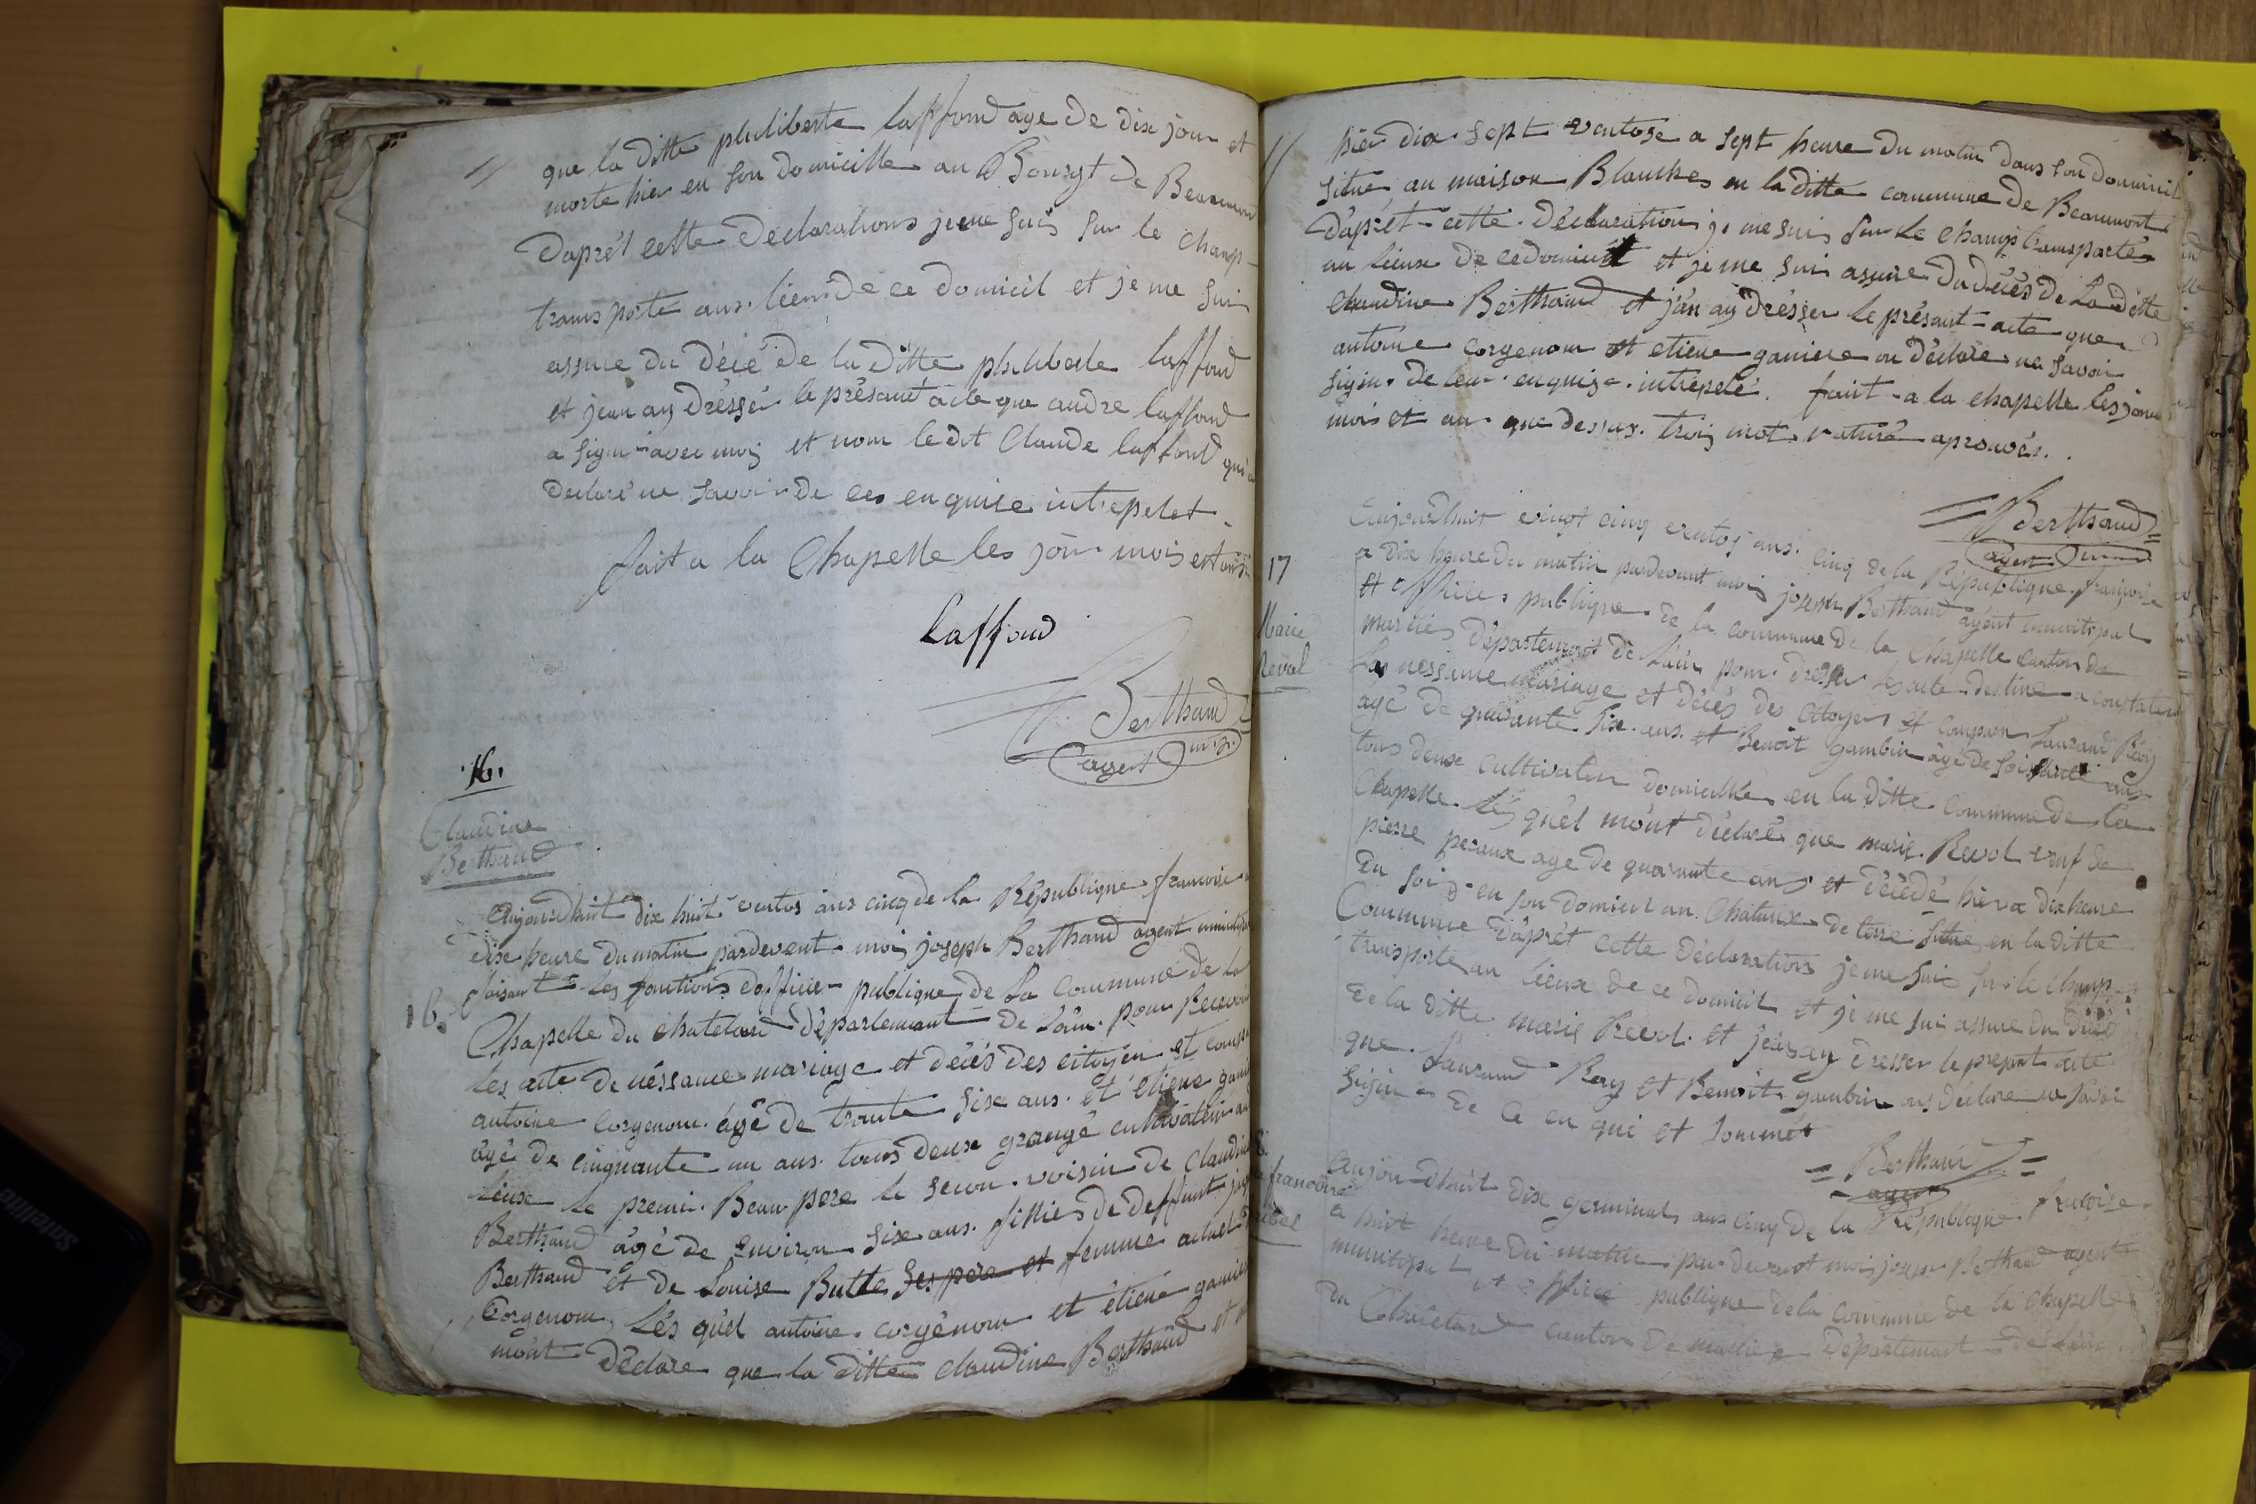 que la ditte philiberte laffond age de dix jour et
morte hier en son domicille au Bourgt de Beaumont
Daprét cette declarations je me suis sur le champ
transporté aus lieux de ce domicil et je me suis
assure du décé de la ditte philiberte laffond
et jean ay dréssér le présant acte que andre laffond
a signé avec moy et nom le dit Claude laffond qui a
declaré ne savoir de ces enquise intrepelet
fait a la Chapelle les jour mois et ans
Laffond
Berthaud
agent m.
16.
Claudine
Berthaud
16.
Aujourdhuit dix huit ventos ans cinq de la République francoise
dix heure du matin pardevent moi joseph Berthaud agent
faisant les fontions dofficier publique de la Commune de la
Chapelle du chatelard département de Lain pour Recevoir
les acte de néssance mariage et décés des citoyen et compru
antoine corgenom âgé de trante sixe ans et etiene
âgé de cinquante un ans tous deux grangé cultivateur
lieux le premier Beau pere le secon voisin de Claudine
Berthaud âgé de environ sixe ans fillie de deffunt
Berthaud et de Louise Butte ses pere et femme actuel
Corgenom, Lés quel antoine corgénom et étiene
mónt déclare que la ditte claudine Berthaud et
hier dix sept ventose a sept heure du matin dans son domicil
situé au maison Blanches en la ditte commune de Beaumont
D'aprét cette déclaration je me suis sur le champ transporté
au lieux de ce domicil et je me suis asuré du décés de La ditte
claudine Berthaud et j'an ay drésser le présant acte que
antoine corgenom et etiene ganiere on déclaré ne savoir
signe de leur enquise intrepelé. fait a la chapelle les jour
mois et an que dessus. trois mot raturé aprouvés.
Berthaud
agent
17
Marie
Revol
Aujourdhuit vingt cinq ventos ans cinq de la République françoise
a dix heure du matin pardevant moi joseph Berthaud agent municipal
et officier publique de la commune de la Chapelle canton de
marlies département de Lain pour dresser les acte destine a constater
Les nessance mariage et décés des citoyens et compron Laurand Rey
agé de quarante sixe ans et Benoit gambin âgé de soixante ans
tous deux cultivateur domicillie en la ditte commune de la
Chapelle. Les quél mónt déclaré que marie Revol veuf de
pierre age de quarante ans et décédé hier a dix heure
du soir en son domicil au Chataux de terre situe en la ditte
Commune d'aprét cette déclaration je me suis sur le champ
transporte au lieux de ce domicil et je me suis assure du décé
de la ditte marie Revol et j'ean ay dresser le present acte
que Laurand Rey et Benoit gambin on déclare ne savoir
signe de ce en qui et sommé
Berthaud
agent
francoise
Aujourdhuit dix germinal ans cinq de la République francoise
a huit heure du matin par devant moi joseph Berthaud agent
municipal et officier publique de la Commune de la chapelle
du Chatelard canton de departement de Lain